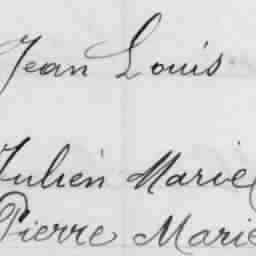 Jean Louis
Julien Marie
Pierre Marie